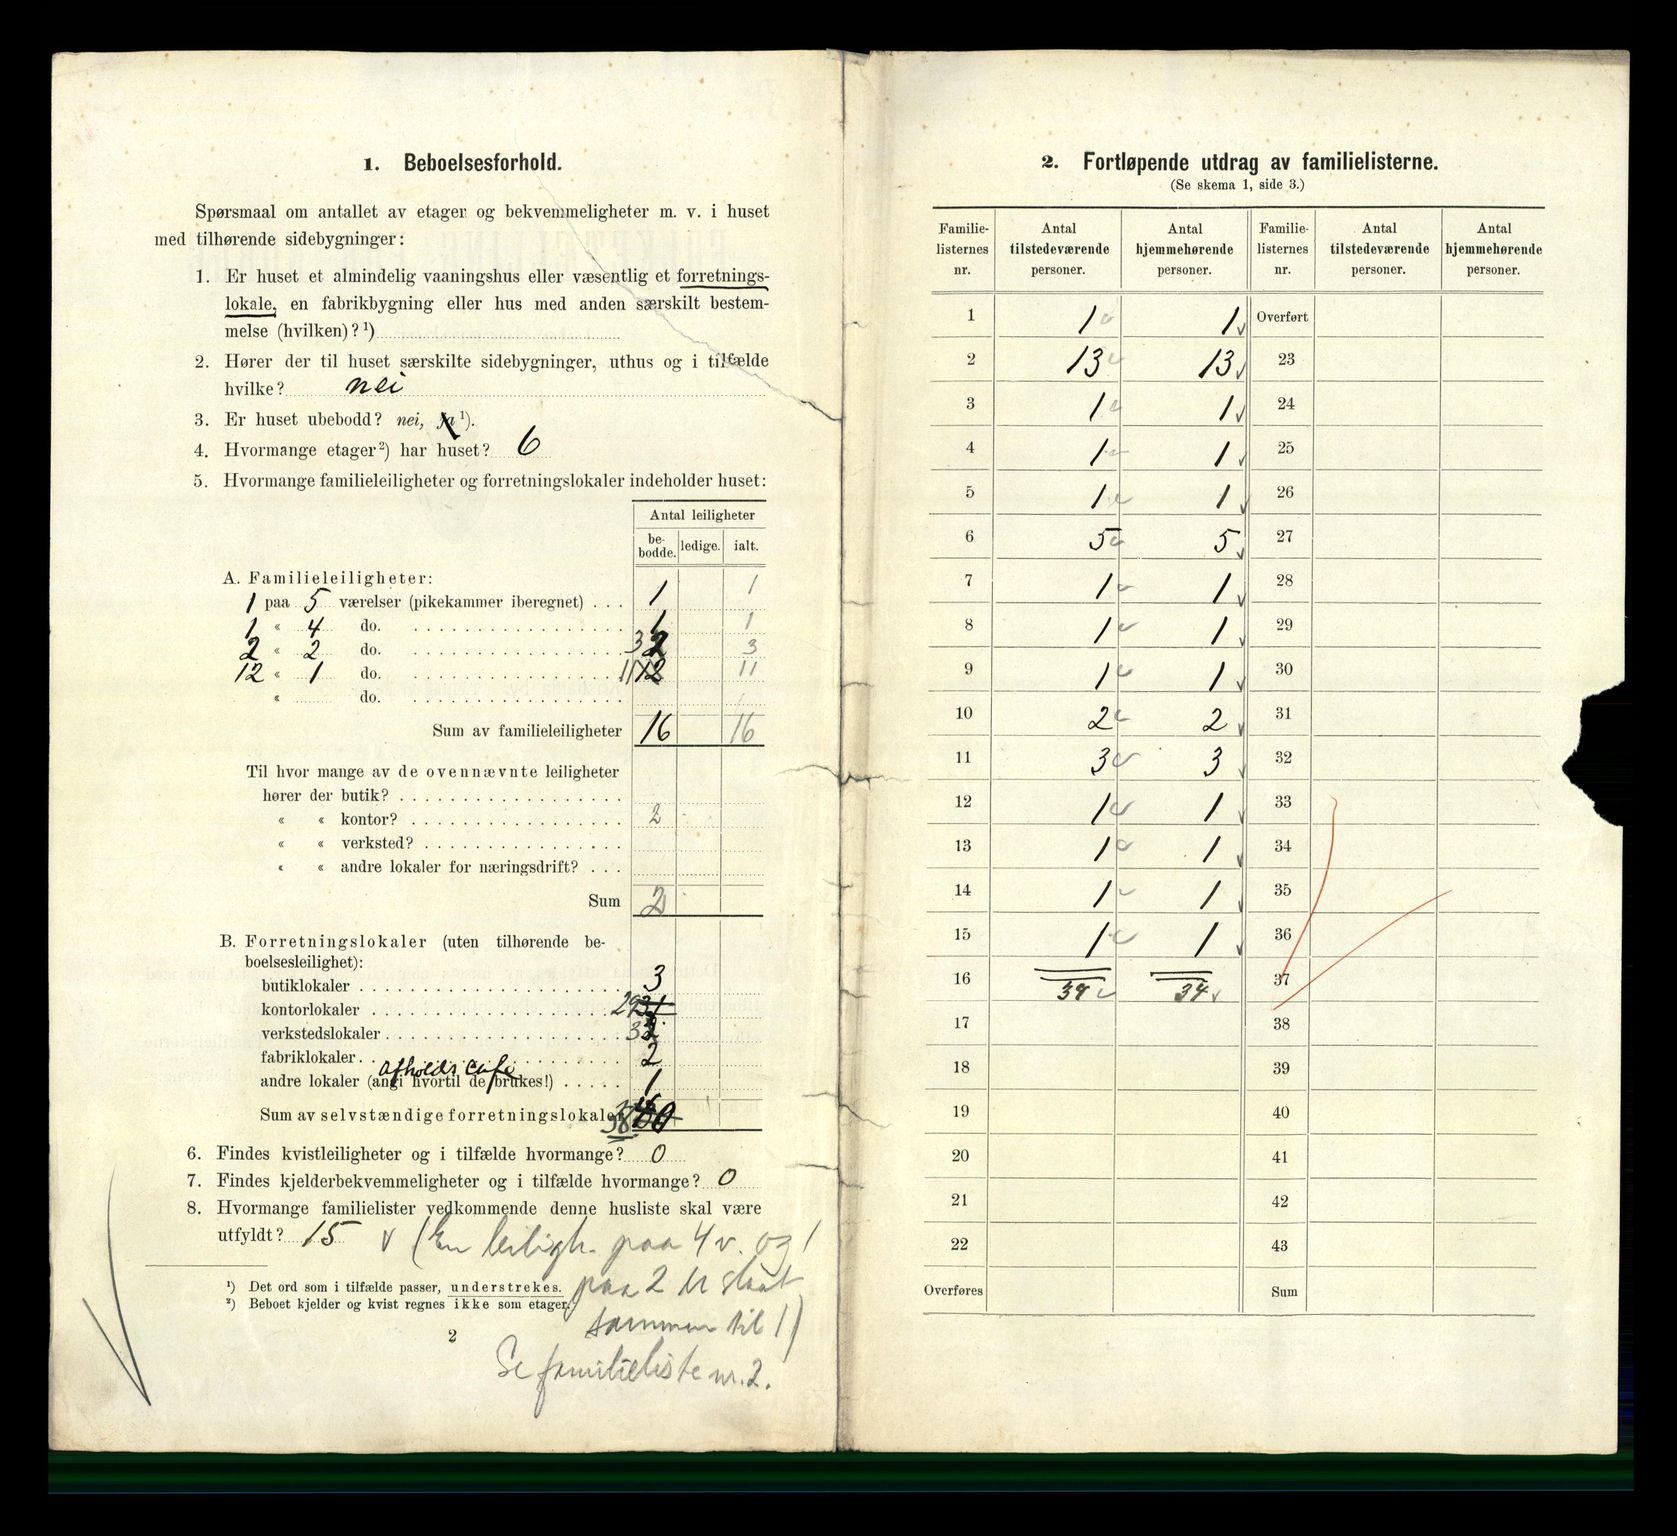 1. Beboelsesforhold.
Spørsmaal om antallet av etager og bekvemmeligheter m. v. i huset
med tilhørende sidebygninger:
1. Er huset et almindelig vaaningshus eller væsentlig et forretnings-
lokale, en fabrikbygning eller hus med anden særskilt bestem-
melse (hvilken)? ¹)
2. Hører der til huset særskilte sidebygninger, uthus og i tilfælde
hvilke? nei
3. Er huset ubebodd? nei, ja ¹).
4. Hvormange etager ²) har huset? 6
5. Hvormange familieleiligheter og forretningslokaler indeholder huset:
Antal leiligheter
be-
bodde. ledige. ialt.
A. Familieleiligheter:
1 paa 5 værelser (pikekammer iberegnet) . . . 1 1
1 « 4 do. 1 1
2 « 2 do. 3 2 3
12 « 1 do. 11 12 11
« do.
Sum av familieleiligheter 16 16
Til hvor mange av de ovennævnte leiligheter
hører der butik?
« « kontor? 2
« « verksted?
« « andre lokaler for næringsdrift?
Sum 2
B. Forretningslokaler (uten tilhørende be-
boelsesleilighet):
butiklokaler 3
kontorlokaler 29 31
verkstedslokaler 3
fabriklokaler 2
afholds café
andre lokaler (angi hvortil de brukes!) 1
Sum av selvstændige forretningslokaler 38 40
6. Findes kvistleiligheter og i tilfælde hvormange? 0
7. Findes kjelderbekvemmeligheter og i tilfælde hvormange? 0
8. Hvormange familielister vedkommende denne husliste skal være
utfyldt? 15 v (En leiligh. paa 4 v. og 1
paa 2 er slaat
sammen til 1)
Se familieliste nr. 2.
¹) Det ord som i tilfælde passer, understrekes.
²) Beboet kjelder og kvist regnes ikke som etager.
2
2. Fortløpende utdrag av familielisterne.
(Se skema 1, side 3.)
Familie-
listernes
nr.
Antal
tilstedeværende
personer.
Antal
hjemmehørende
personer.
Familie-
listernes
nr.
Antal
tilstedeværende
personer.
Antal
hjemmehørende
personer.
1 1 1 Overført
2 13 13 23
3 1 1 24
4 1 1 25
5 1 1 26
6 5 5 27
7 1 1 28
8 1 1 29
9 1 1 30
10 2 2 31
11 3 3 32
12 1 1 33
13 1 1 34
14 1 1 35
15 1 1 36
16 34 34 37
17 38
18 39
19 40
20 41
21 42
22 43
Overføres Sum